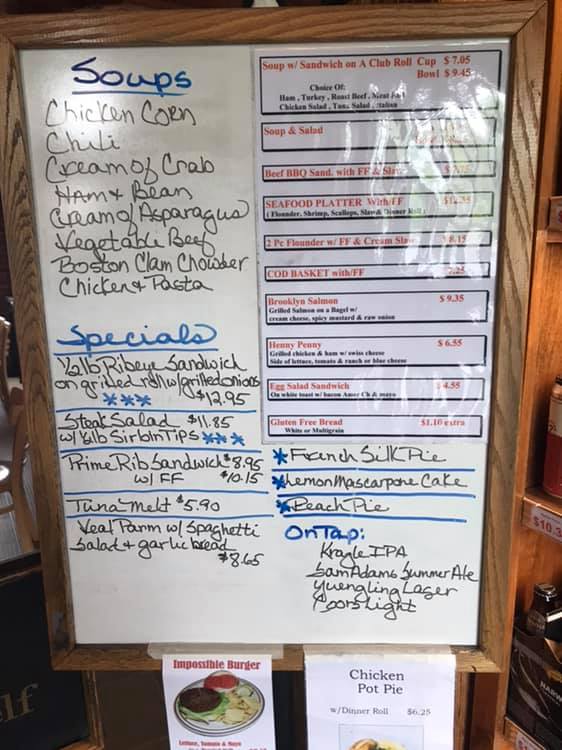 Soups
Chicken Corn
Chili
Cream of Crab
Ham & Bean
Cream of Asparagus
Vegetable Beef
Boston Clam Chowder
Chicken & Pasta
Specials
1/2 lb Ribeye Sandwich
on grilled roll w/ grilled onions
*** $12.95
Steak Salad $11.85
w/ 1/2 lb Sirloin Tips ***
Prime Rib Sandwich $8.95
w/ FF $10.15
Tuna Melt $5.90
Veal Parm w/ Spaghetti
Salad & garlic bread
$8.65
Soup w/ Sandwich on A Club Roll Cup $ 7.05
Bowl $ 9.45
Choice Of:
Ham , Turkey , Roast Beef , Meat
Chicken Salad , Tuna Salad , Italian
Soup & Salad
Beef BBQ Sand. with FF & Slaw
SEAFOOD PLATTER With/FF
( Flounder, Shrimp, Scallops, Slaw& Dinner Roll )
2 Pc Flounder w/ FF & Cream Slaw $ 8.15
COD BASKET with/FF 7.25
Brooklyn Salmon $ 9.35
Grilled Salmon on a Bagel w/
cream cheese, spicy mustard & raw onion
Henny Penny $ 6.55
Grilled chicken & ham w/ swiss cheese
Side of lettuce, tomato & ranch or blue cheese
Egg Salad Sandwich $ 4.55
On white toast w/ bacon Amer Ch & mayo
Gluten Free Bread $1.10 extra
White or Multigrain
* French Silk Pie
* Lemon Mascarpone Cake
* Peach Pie
On Tap:
Krazle IPA
Sam Adams Summer Ale
Yuengling Lager
Coors Light
Impossible Burger
Lettuce, Tomato & Mayo
Chicken
Pot Pie
w/Dinner Roll $6.25
elf
$10.3
HARW